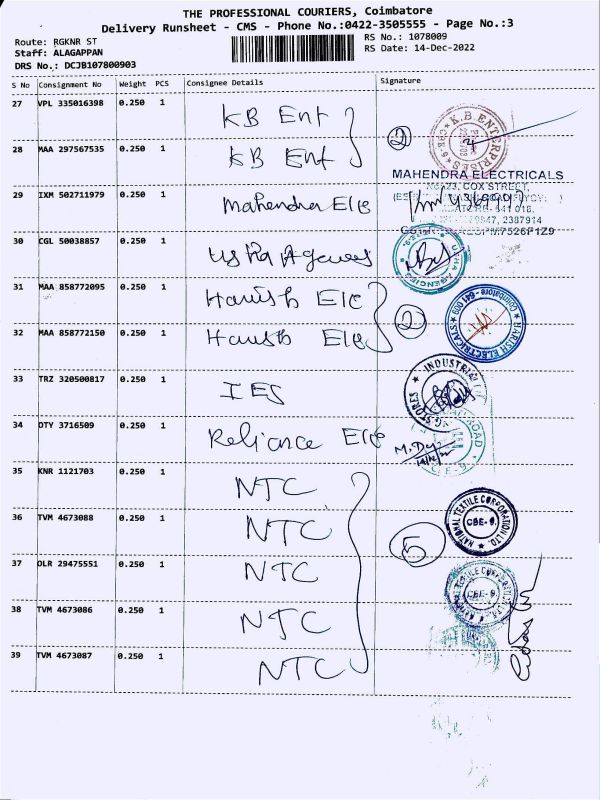 THE PROFESSIONAL COURIERS, Coimbatore
Delivery Runsheet - CMS - Phone No.:0422-3505555 - Page No.:3
Route: RGKNR ST
RS No.: 1078009
Staff: ALAGAPPAN
RS Date: 14-Dec-2022
DRS No.: DCJB107800903
S No Consignment No Weight PCS Consignee Details Signature
27 VPL 335016398 0.250 1 KB Ent
K.B. ENTERPRISES
28 MAA 297567535 0.250 1 KB Ent 2
MAHENDRA ELECTRICALS
29 IXM 502711979 0.250 1 Mahendra Ele
COX STREET,
2387914
30 CGL 50038857 0.250 1 Usha Agencies
USHA AGENCIES
31 MAA 858772095 0.250 1 Harish Ele
32 MAA 858772150 0.250 1 Harish Ele 2
HARISH ELECTRICALS Coimbatore - 641 009
33 TRZ 320500817 0.250 1 IES
INDUSTRIAL
STORES
34 DTY 3716509 0.250 1 Reliance Ele
35 KNR 1121703 0.250 1 NTC
36 TVM 4673088 0.250 1 NTC
NATIONAL TEXTILE CORPORATION LTD. CBE-9.
37 DLR 29475551 0.250 1 NTC 5
CBE-9.
38 TVM 4673086 0.250 1 NTC
39 TVM 4673087 0.250 1 NTC